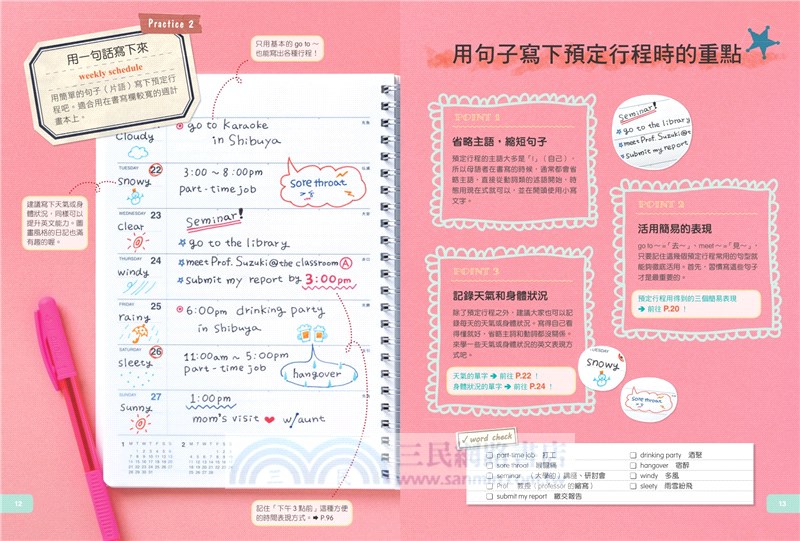 Practice 2
用一句話寫下來
weekly schedule
用簡單的句子（片語）寫下預定行
程吧。適合用在書寫欄較寬的週計
畫本上。
只用基本的 go to ～
也能寫出各種行程！
cloudy
go to karaoke
in Shibuya
TUESDAY 22
snowy
3:00 ~ 8:00pm
part-time job
sore throat
建議寫下天氣或身
體狀況，同樣可以
提升英文能力。圖
畫風格的日記也滿
有趣的喔。
WEDNESDAY 23
clear
Seminar!
go to the library
THURSDAY 24
windy
meet Prof. Suzuki@the classroom A
submit my report by 3:00pm
FRIDAY 25
rainy
6:00pm drinking party
in Shibuya
SATURDAY 26
sleety
11:00am ~ 5:00pm
part-time job
hangover
SUNDAY 27
sunny
1:00pm
mom's visit ❤ w/aunt
記住「下午3點前」這種方便
的時間表現方式。➡ P.96
12
用句子寫下預定行程時的重點
POINT 1
省略主語，縮短句子
預定行程的主語大多是「I」（自己），
所以母語者在書寫的時候，通常都會省
略主語，直接從動詞類的述語開始，時
態用現在式就可以，並在開頭使用小寫
文字。
Seminar!
go to the library
meet Prof. Suzuki@t
submit my report
POINT 2
活用簡易的表現
go to ～＝「去～」，meet～＝「見～」，
只要記住這幾個預定行程常用的句型就
能夠徹底活用。首先，習慣寫這些句子
才是最重要的。
預定行程用得到的三個簡易表現
➜ 前往 P.20 ！
POINT 3
記錄天氣和身體狀況
除了預定行程之外，建議大家也可以記
錄每天的天氣或身體狀況。寫得自己看
得懂就好，省略主詞和動詞都沒關係。
來學一些天氣或身體狀況的英文表現方
式吧。
天氣的單字 ➜ 前往 P.22 ！
身體狀況的單字 ➜ 前往 P.24 ！
snowy
sore throat
word check
part-time job 打工
sore throat 喉嚨痛
seminar （大學的）講座、研討會
Prof. 教授（professor 的縮寫）
submit my report 繳交報告
drinking party 酒聚
hangover 宿醉
windy 多風
sleety 雨雪紛飛
三民網路書店
13